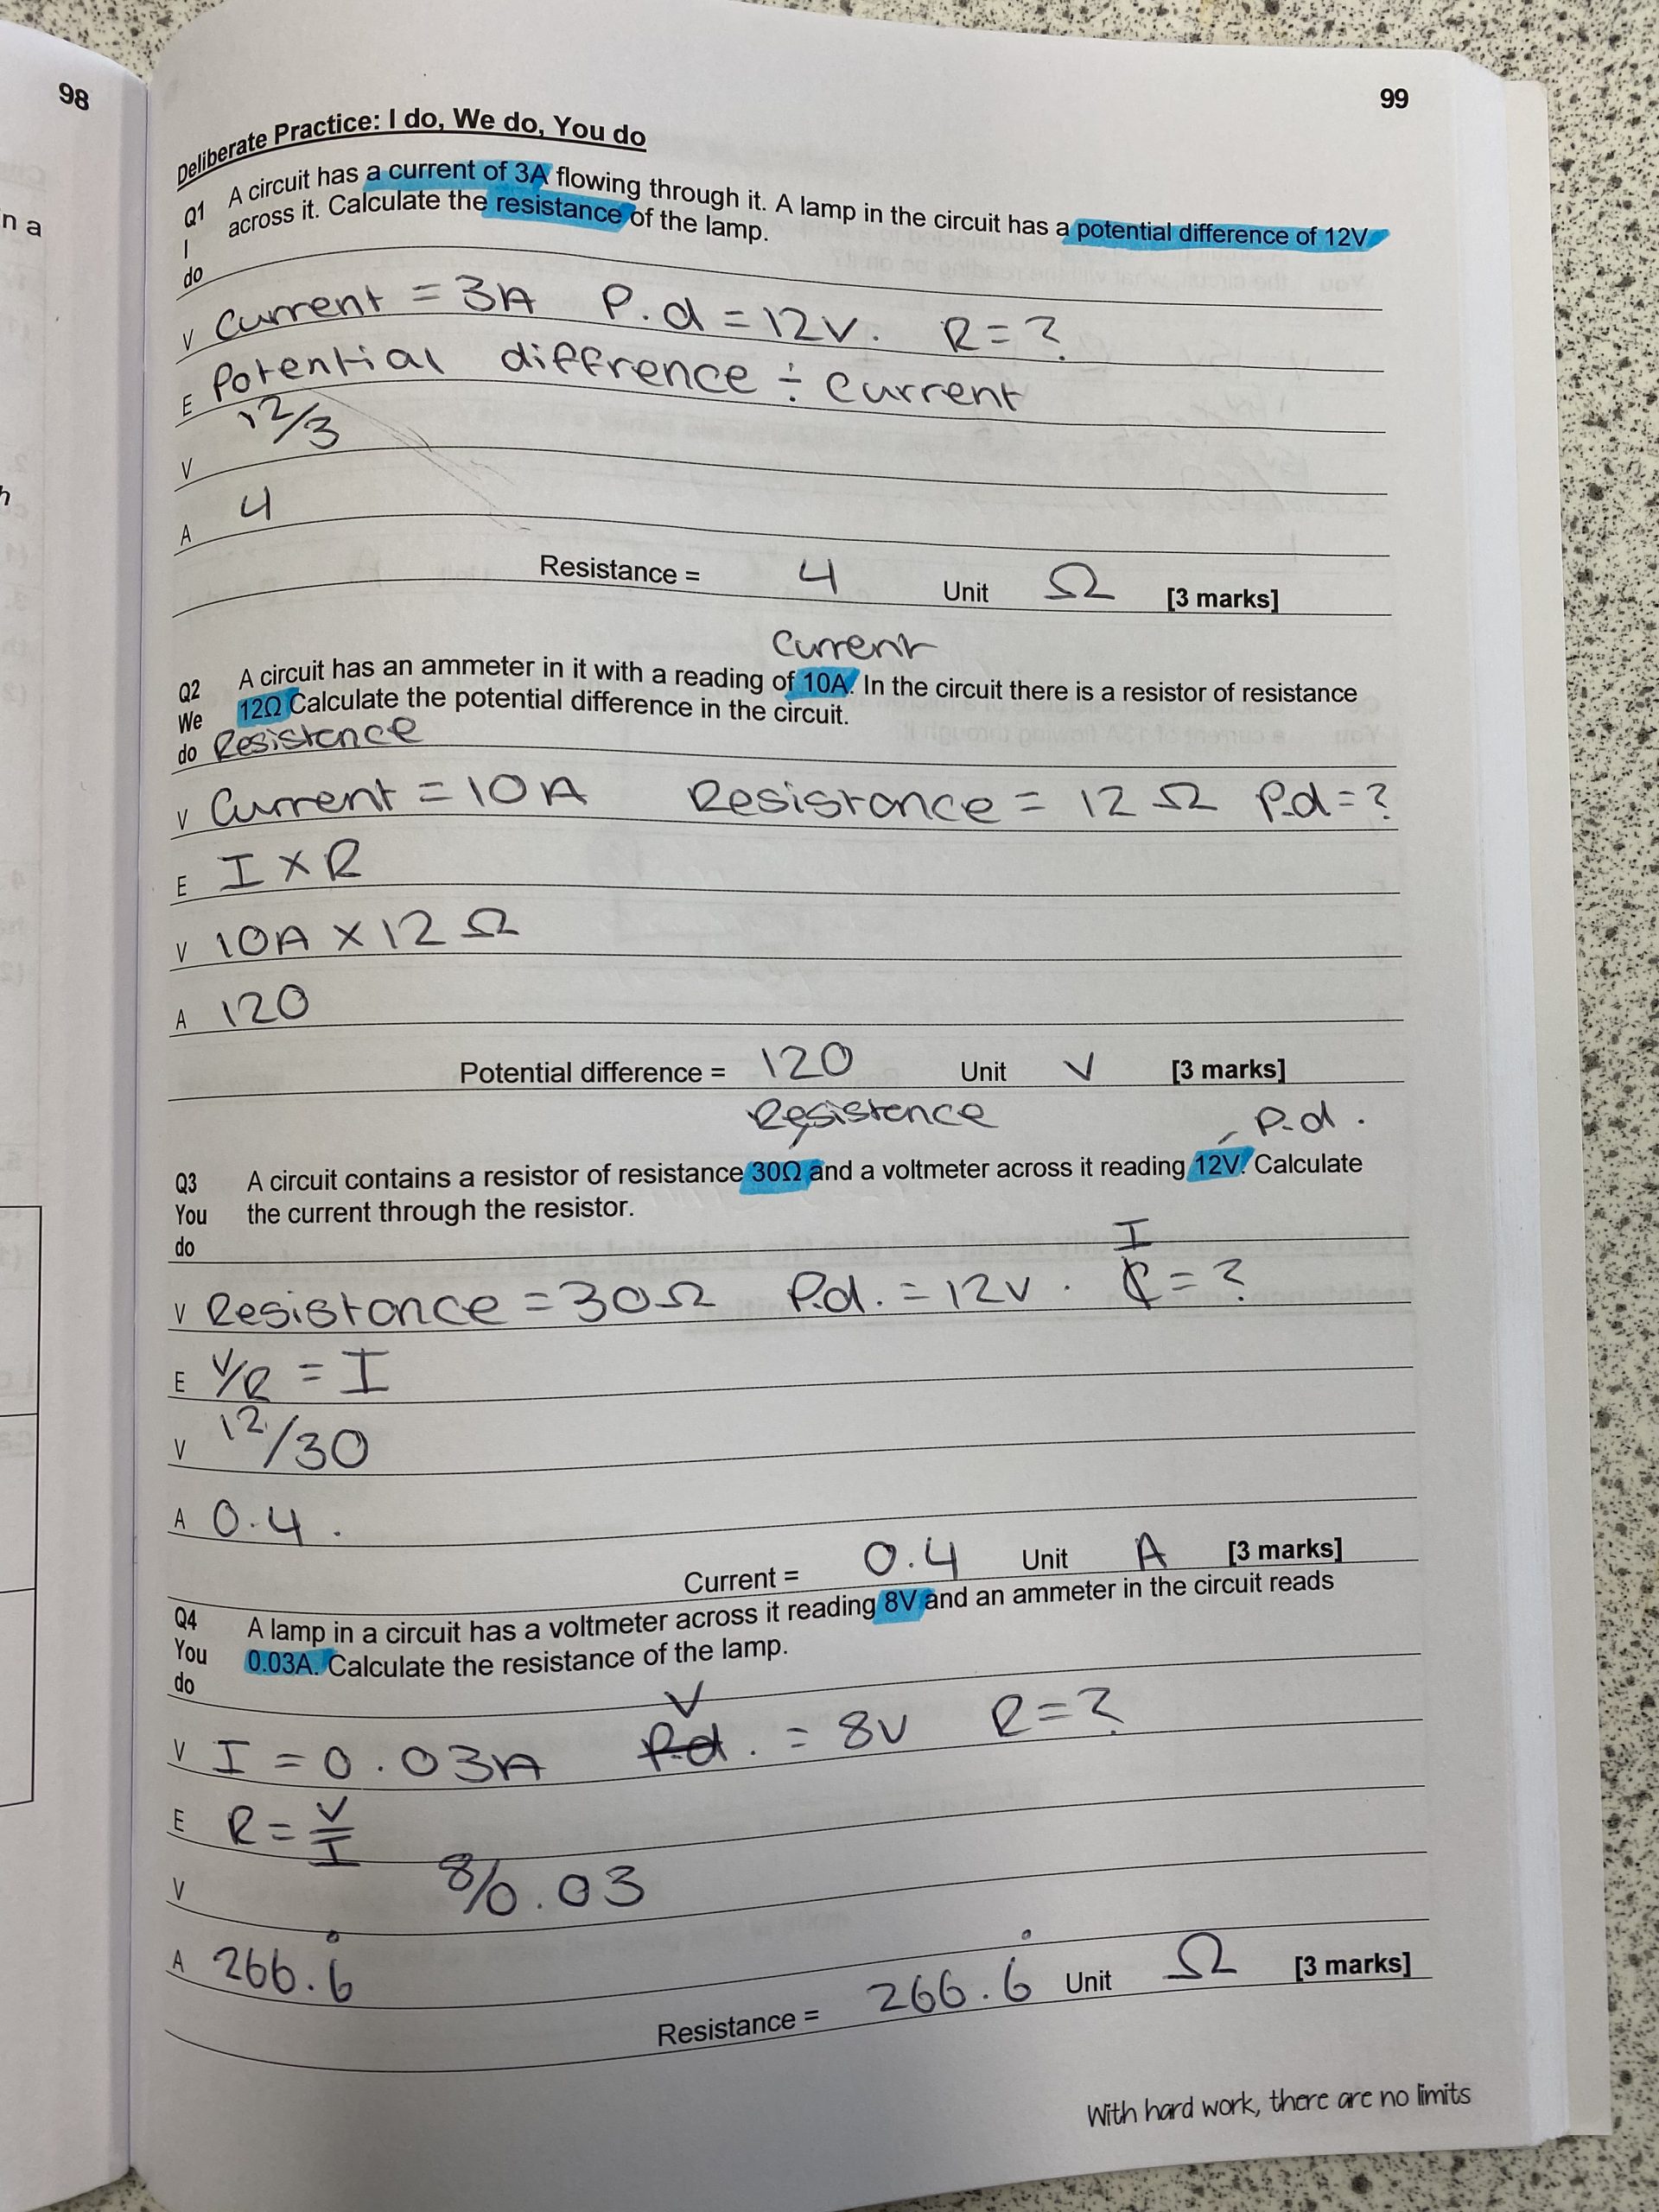 98
99
n a
h
Deliberate Practice: I do, We do, You do
Q1 A circuit has a current of 3A flowing through it. A lamp in the circuit has a potential difference of 12V
I across it. Calculate the resistance of the lamp.
do
V Current = 3A P.d = 12V. R = ?
E Potential diffrence ÷ current
V 12/3
A 4
Resistance = 4 Unit Ω [3 marks]
Current
Q2 A circuit has an ammeter in it with a reading of 10A. In the circuit there is a resistor of resistance
We 12Ω Calculate the potential difference in the circuit.
do Resistence
V Current = 10A Resistance = 12Ω P.d = ?
E I × R
V 10A × 12Ω
A 120
Potential difference = 120 Unit V [3 marks]
Resistence P.d.
Q3 A circuit contains a resistor of resistance 30Ω and a voltmeter across it reading 12V. Calculate
You the current through the resistor.
do
I
V Resistance = 30Ω P.d. = 12V. C = ?
E V/R = I
V 12/30
A 0.4.
Current = 0.4 Unit A [3 marks]
Q4 A lamp in a circuit has a voltmeter across it reading 8V and an ammeter in the circuit reads
You 0.03A. Calculate the resistance of the lamp.
do
V
V I = 0.03A P.d. = 8V R = ?
E R = V/I
V 8/0.03
A 266.6̇
Resistance = 266.6̇ Unit Ω [3 marks]
With hard work, there are no limits